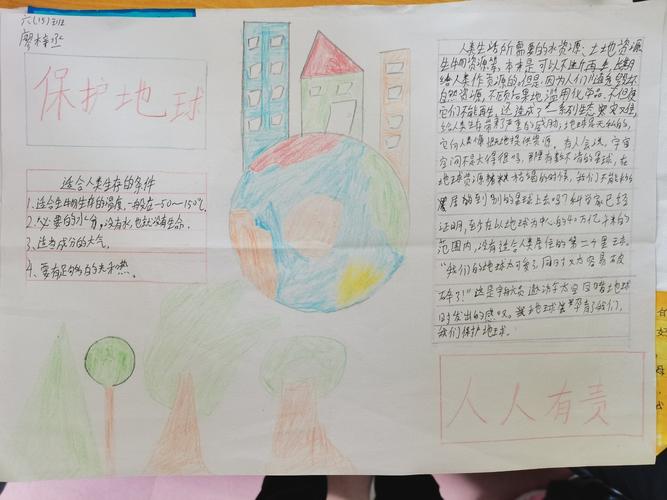 六(15)班
廖梓丞
保护地球
适合人类生存的条件
1.适合生物生存的温度,一般在-50~150℃。
2.必要的水分,没有水,也就没有生命。
3.适当成分的大气。
4.要有足够的光和热。
人类生活所需要的水资源、土地资源
生物资源等,本来是可以不断再生,长期
给人类作贡献的。但是,因为人们随意毁坏
自然资源,不顾后果地滥用化学品,不但使
它们不能再生,还造成了一系列生态灾难
给人类生存带来了严重的威胁。地球是无私的,
它向人类慷慨地提供资源。有人会说,宇宙
空间不是大得很吗,那里有数不清的星球,在
地球资源枯竭的时候,我们不能
搬到别的星球上去吗?科学家已经
证明,至少在以地球为中心的40万亿千米的
范围内,没有适合人类居住的第二个星球。
“我们的地球太可爱了,同时又太容易破
碎了!”这是宇航员遨游太空目睹地球
时发出的感叹。
我们保护地球。
人人有责